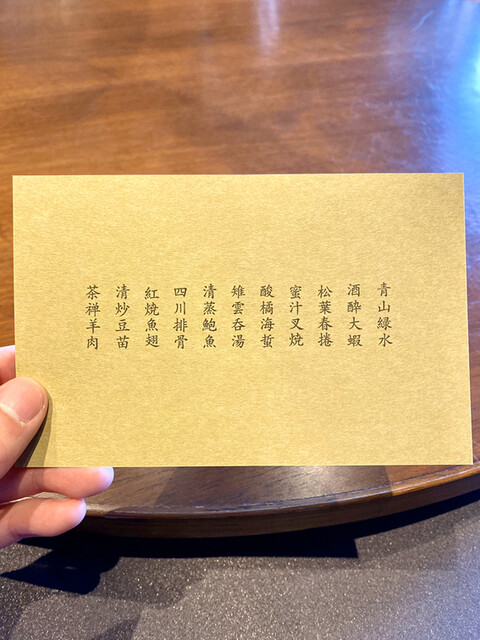 青山緑水
酒醉大蝦
松葉春捲
蜜汁叉焼
酸橘海蜇
雉雲吞湯
清蒸鮑魚
四川排骨
紅焼魚翅
清炒豆苗
茶禅羊肉